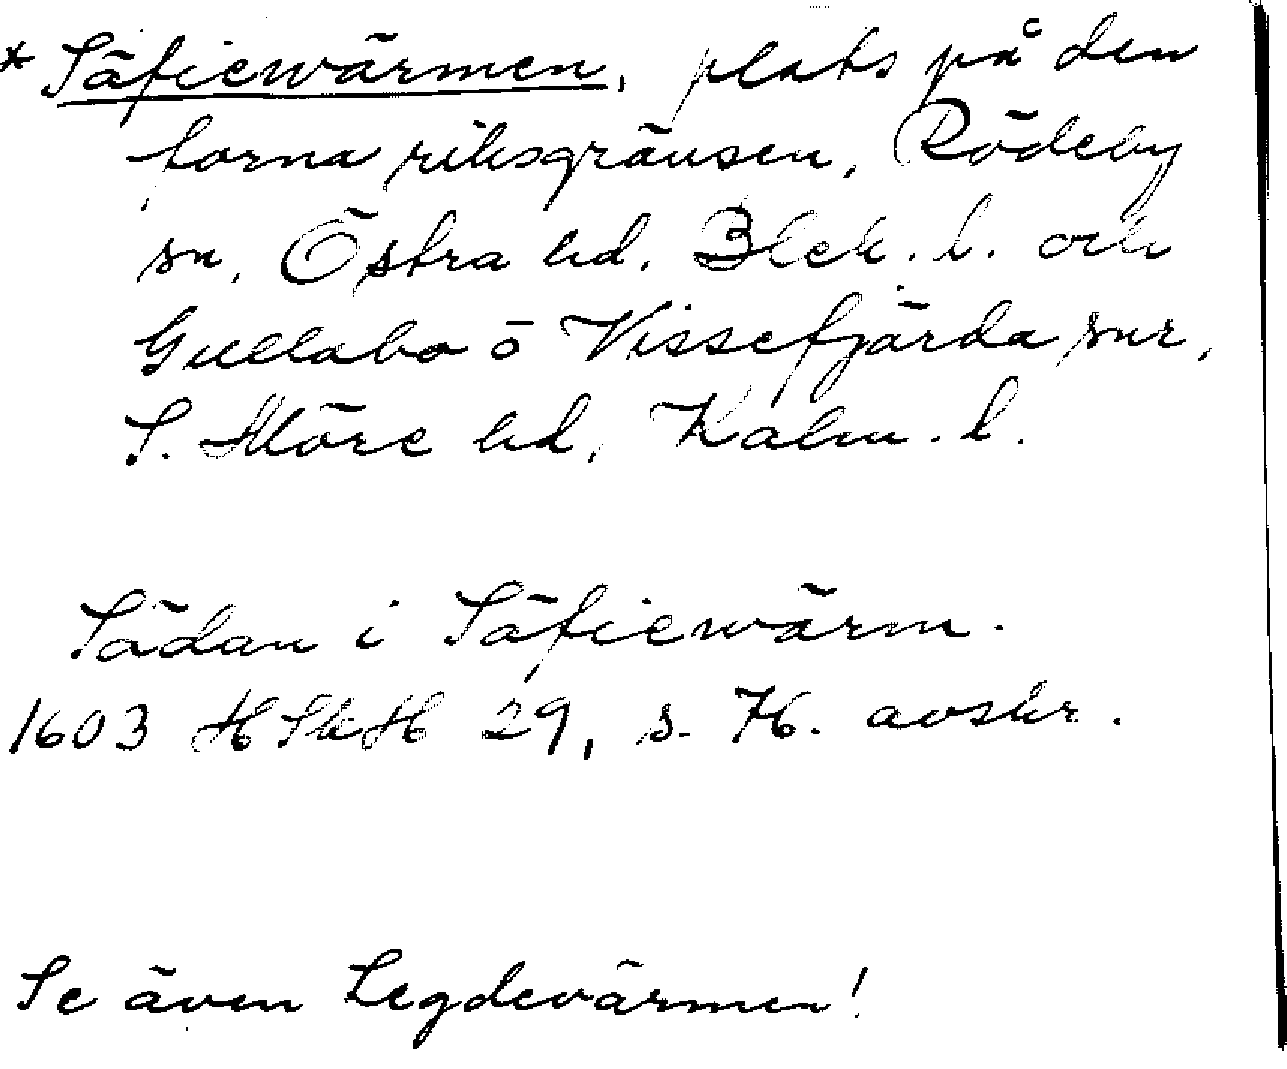 * Säfiewärmen, plats på den
forna riksgränsen, Rödeby
sn, Östra hd. Blek. l. och
Gullabo o Vissefjärda snr,
S. Möre hd, Kalm. l.
Sädan i Säfiewärm.
1603 HSkH 29, s. 76. avskr.
Se även Legdevärmen!